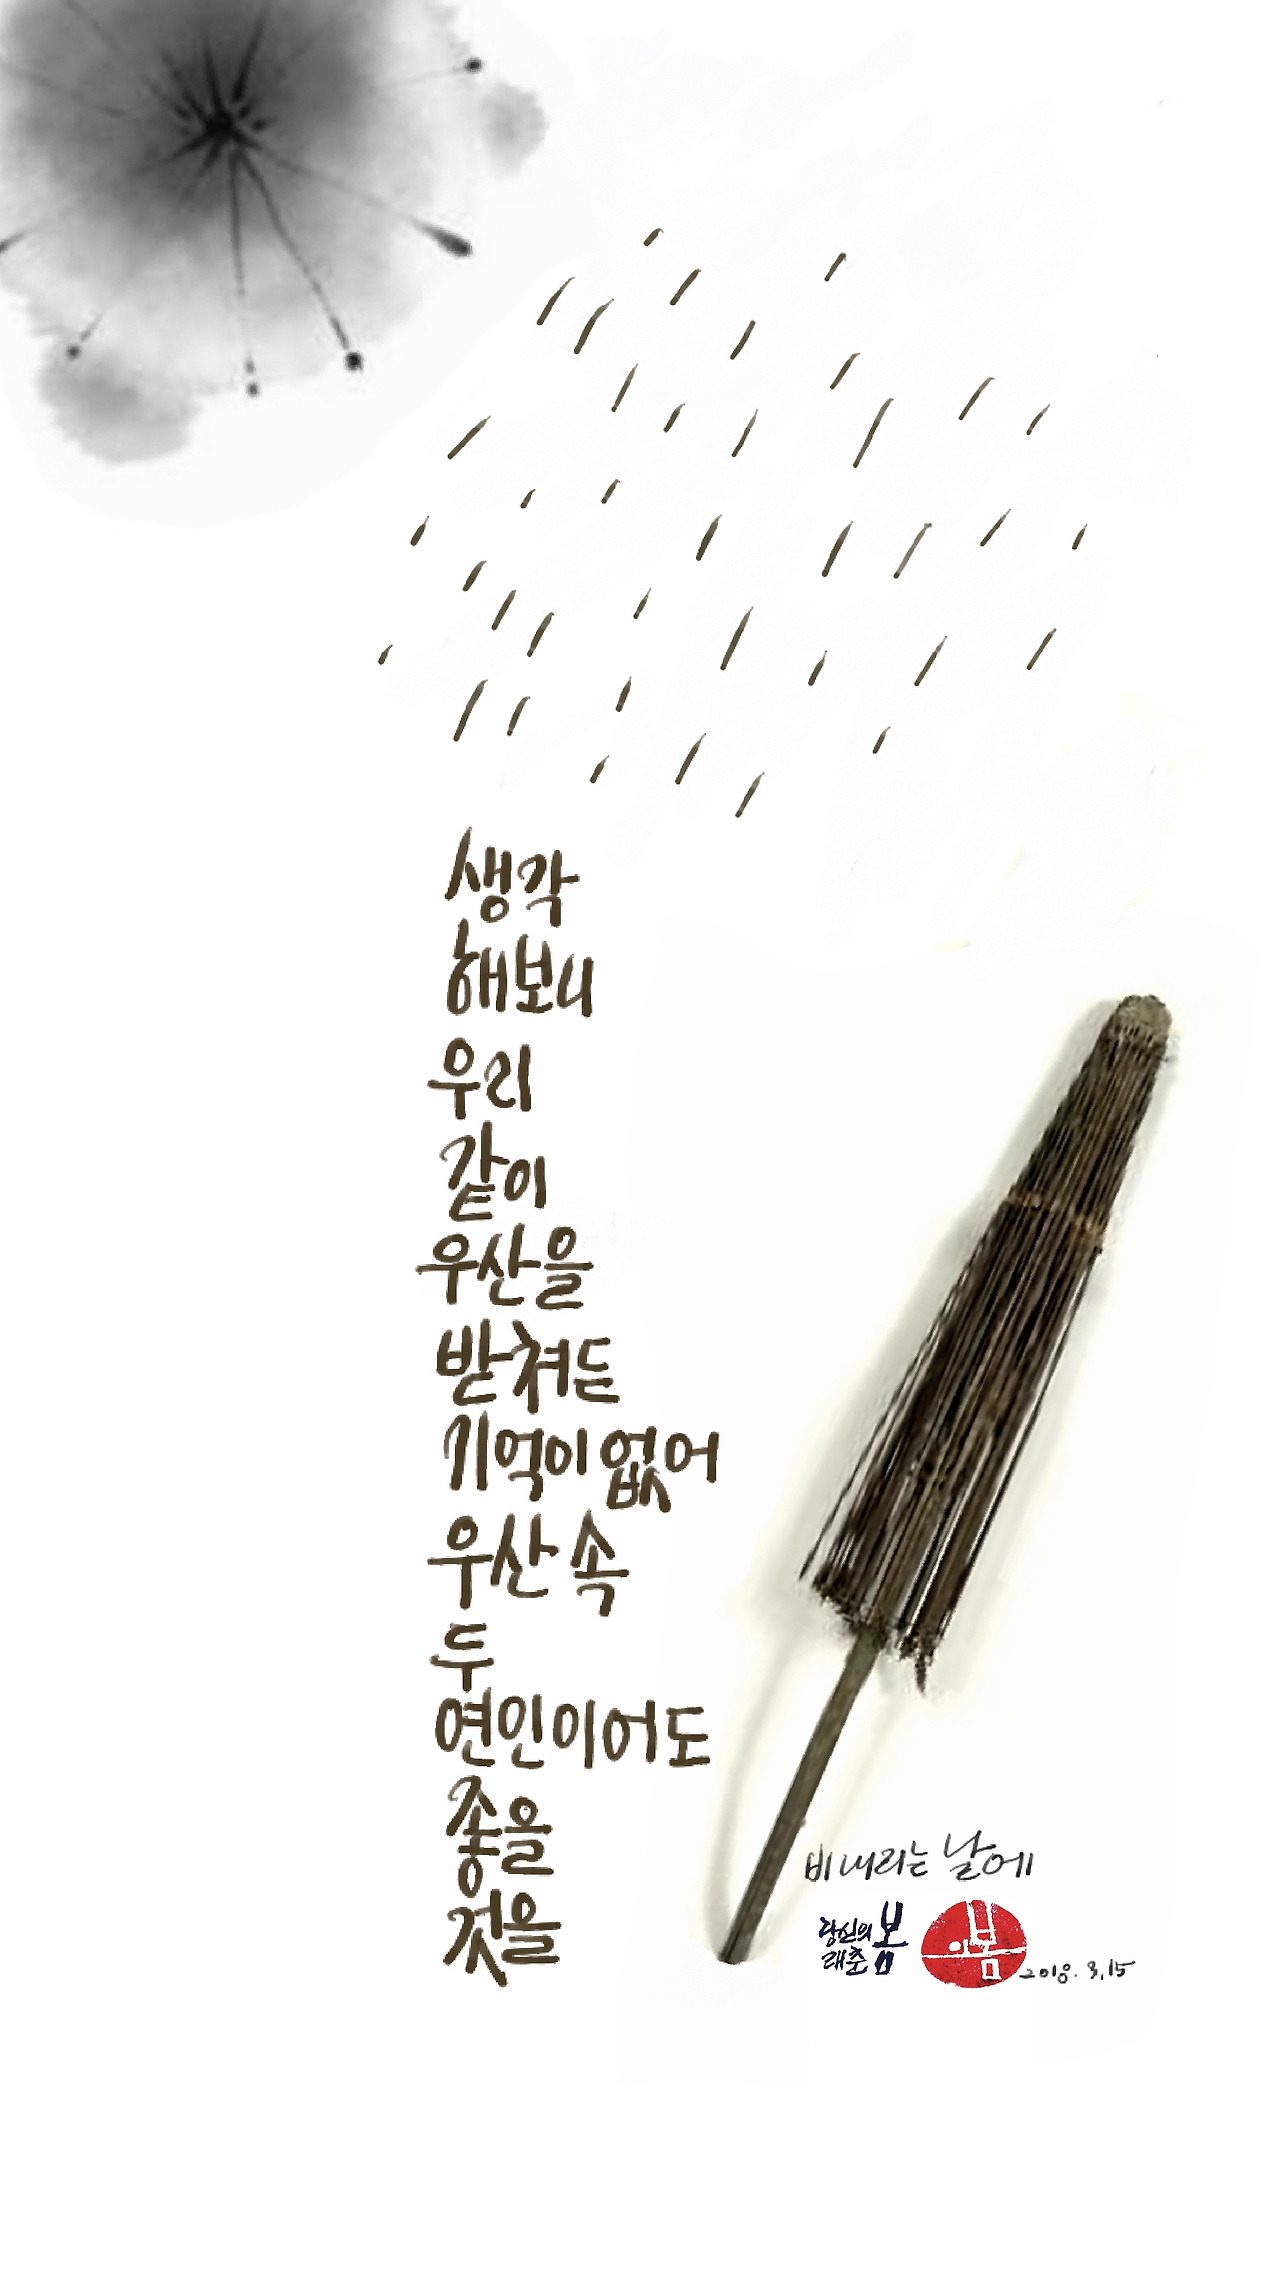 생각
해보니
우리
같이
우산을
받쳐든
기억이 없어
우산 속
두
연인이어도
좋을
것을
비 내리는 날에
당신의 봄
래춘
이봄
2018. 3. 15